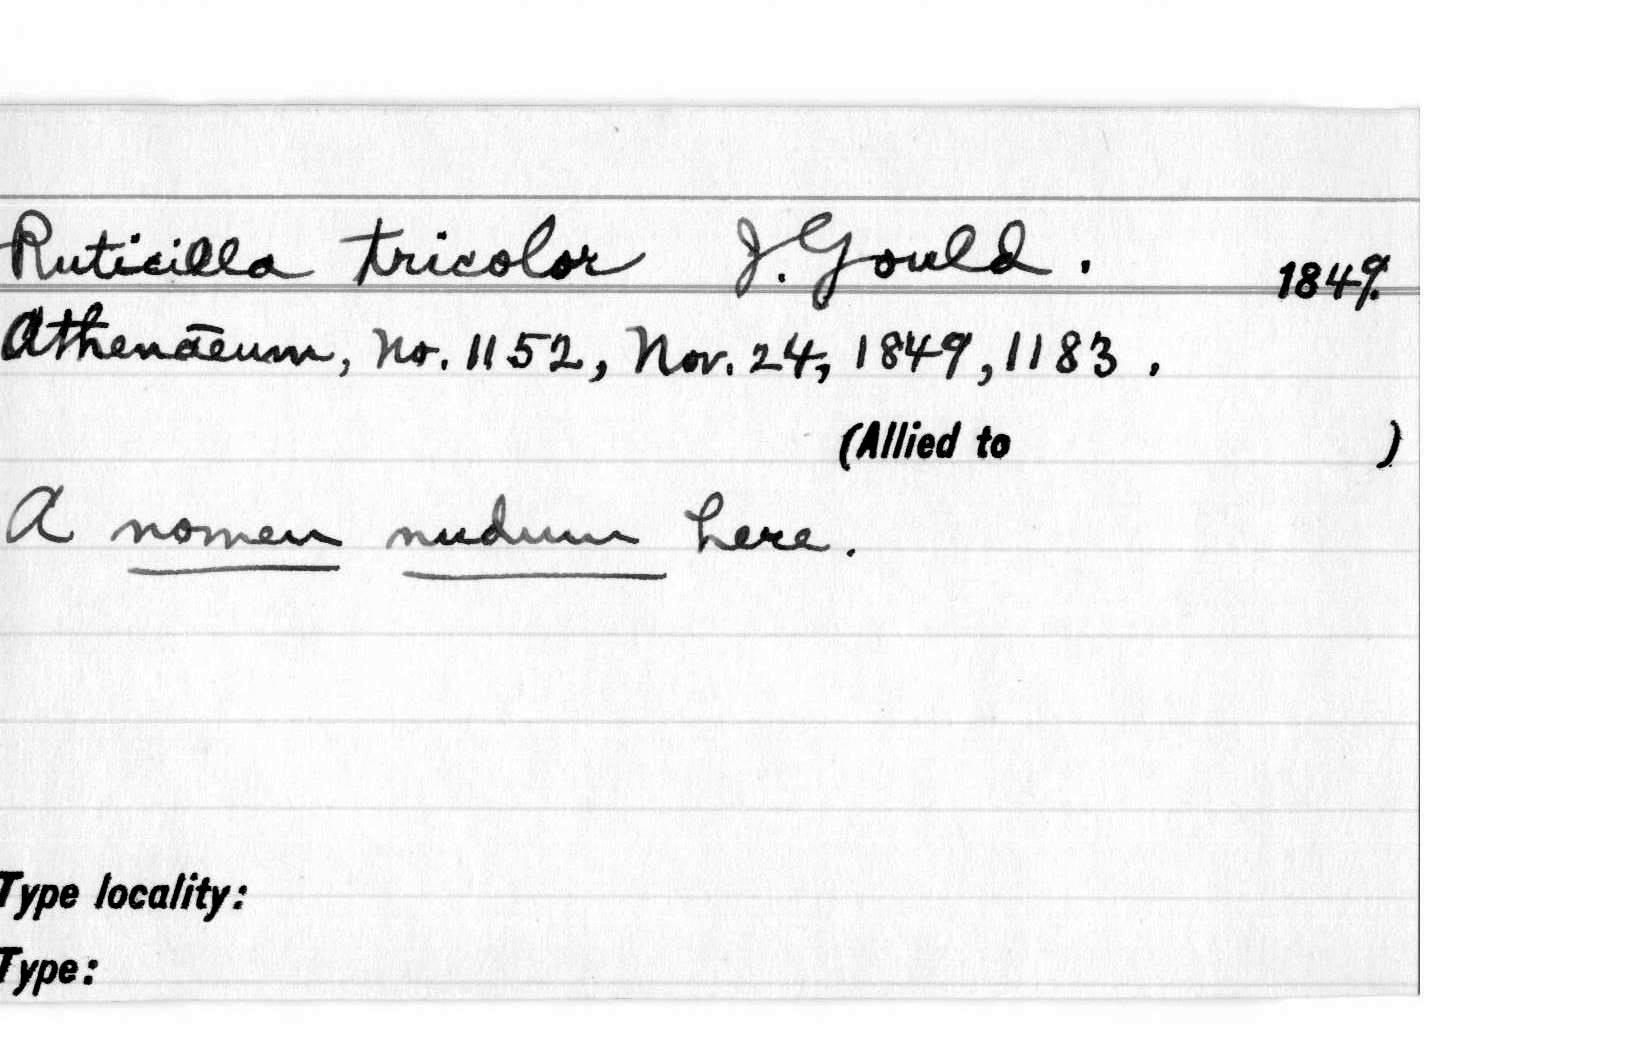 Ruticilla tricolor J. Gould. 1849.
Athenāeum, No. 1152, Nov. 24, 1849, 1183.
(Allied to )
A nomen nudum here.
Type locality:
Type: